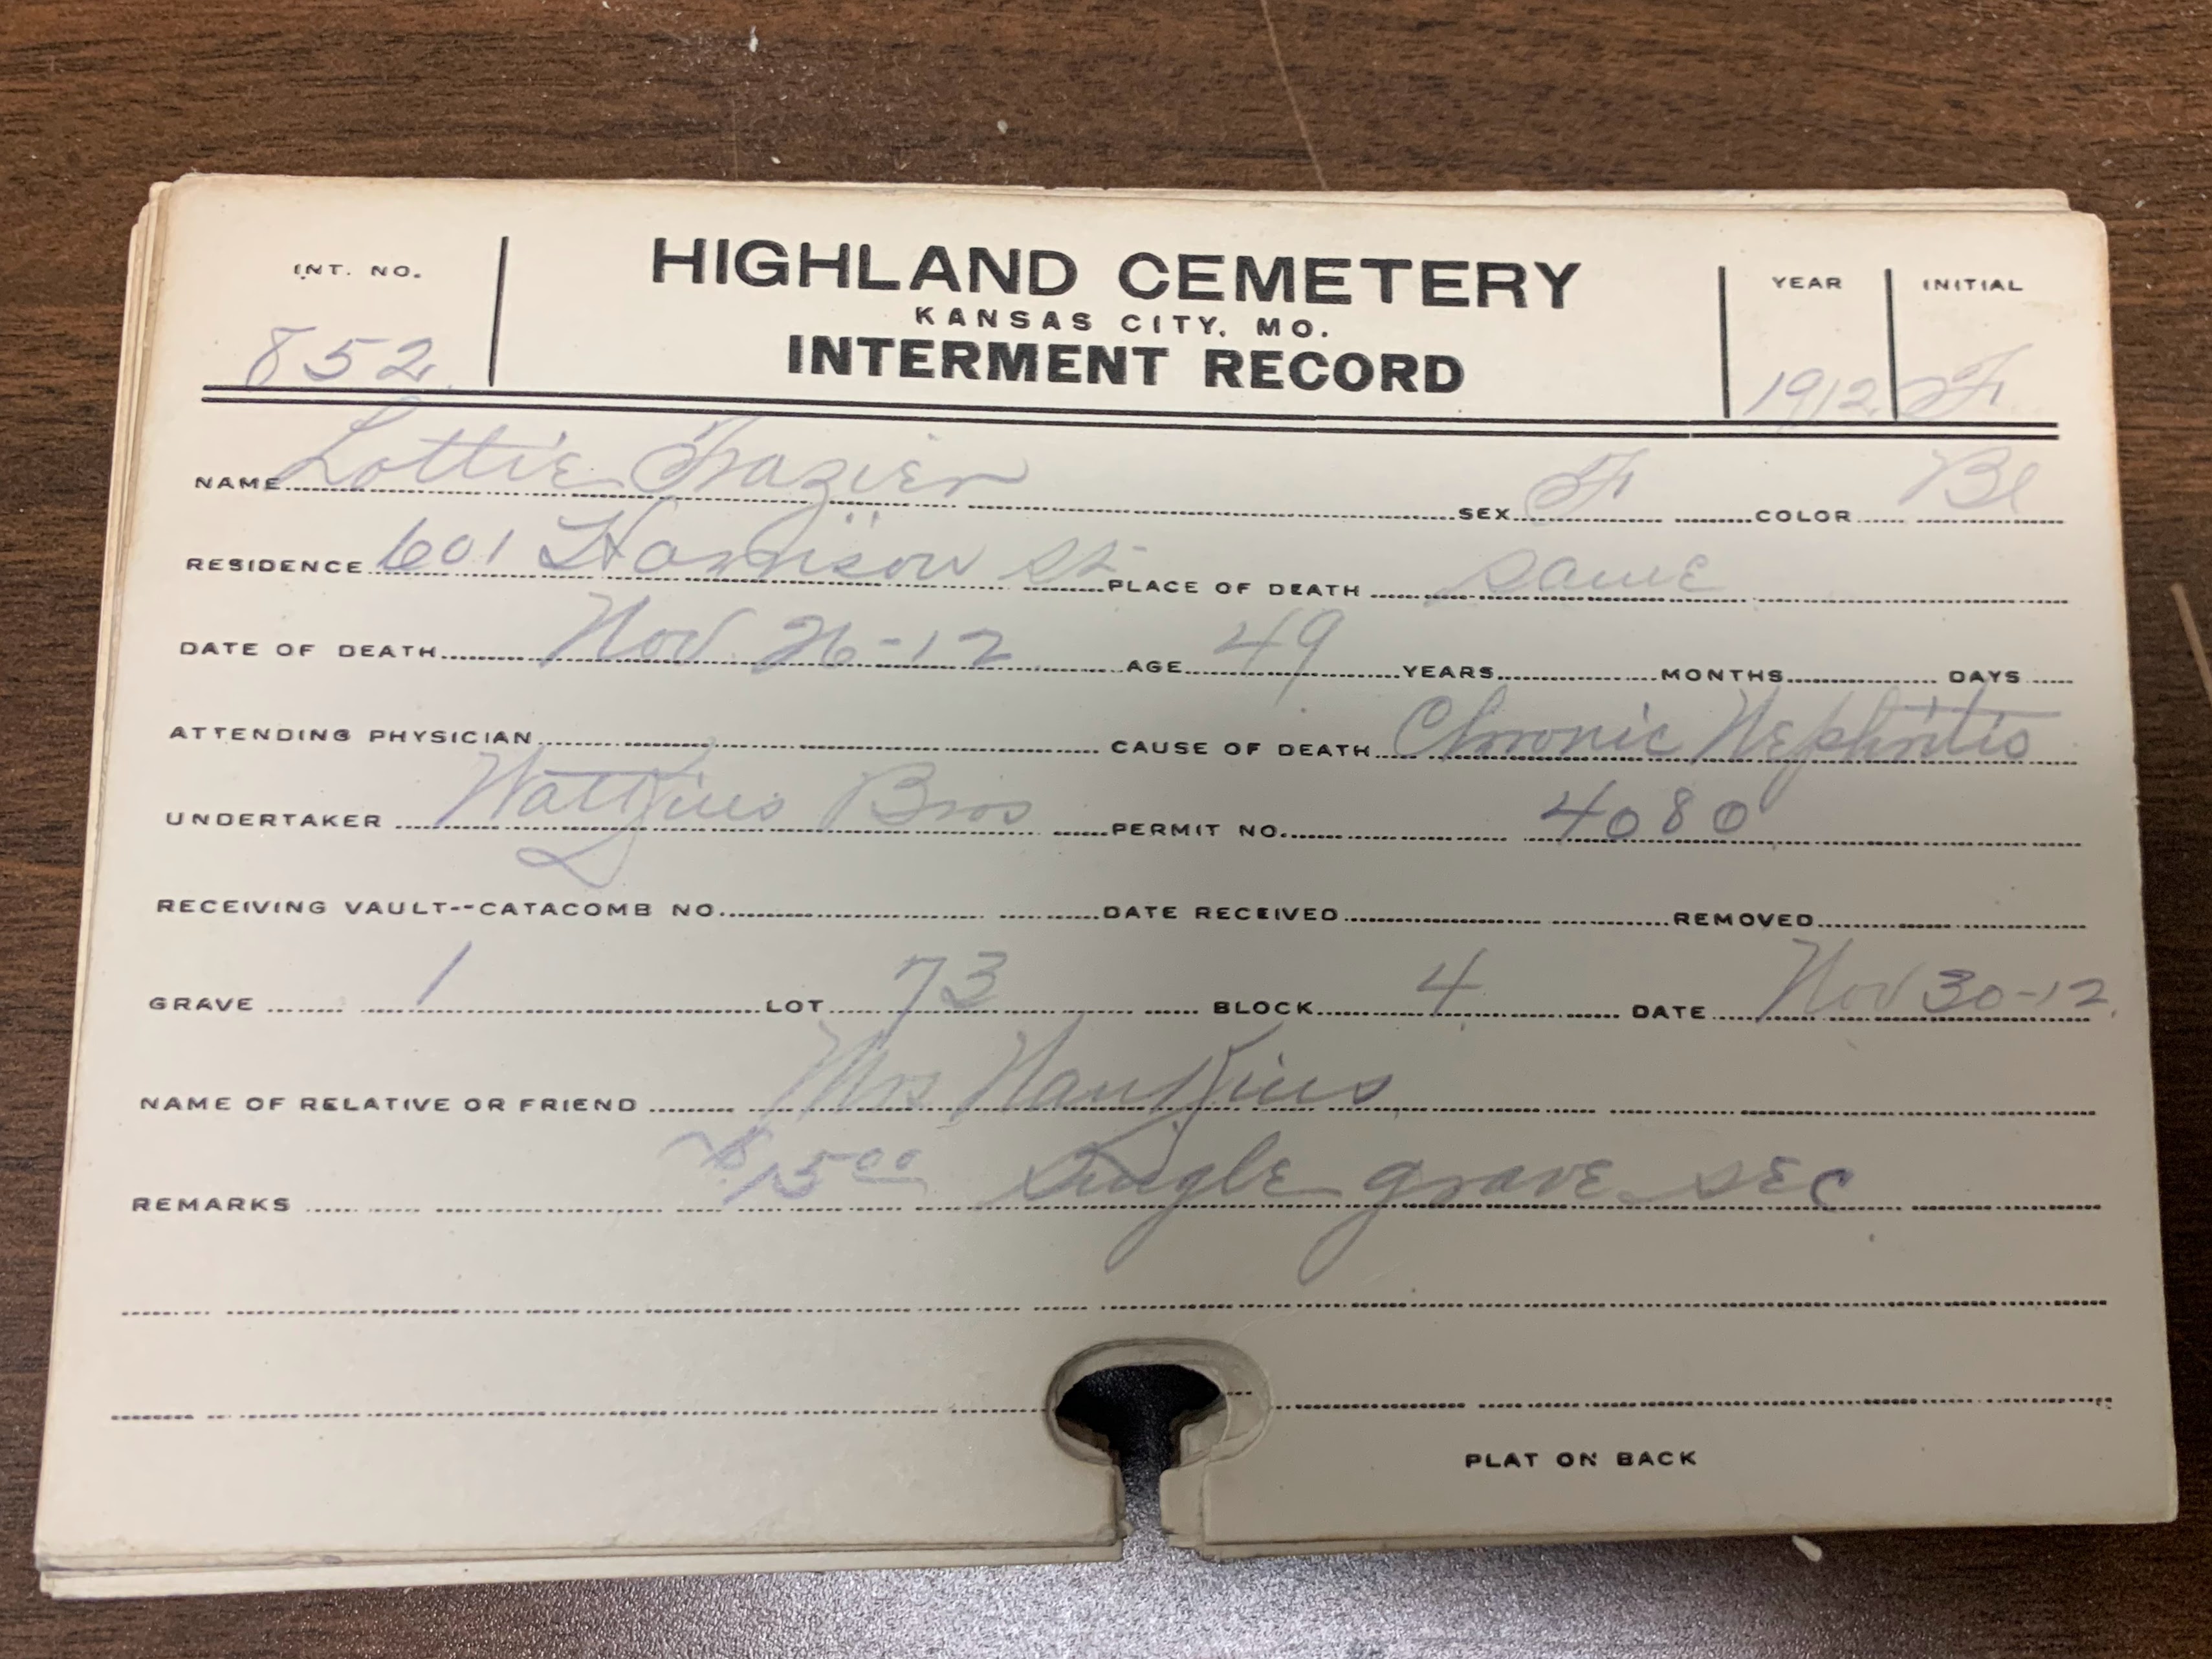 INT. NO.
HIGHLAND CEMETERY
YEAR INITIAL
KANSAS CITY, MO.
852 INTERMENT RECORD 1912 F
NAME Lottie Frazier SEX F COLOR Bl
RESIDENCE 601 Harrison St PLACE OF DEATH Same
DATE OF DEATH Nov. 26-12 AGE 49 YEARS MONTHS DAYS
ATTENDING PHYSICIAN CAUSE OF DEATH Chronic Nephritis
UNDERTAKER Wattkins Bros PERMIT NO. 4080
RECEIVING VAULT--CATACOMB NO. DATE RECEIVED REMOVED
GRAVE 1 LOT 73 BLOCK 4 DATE Nov 30-12.
NAME OF RELATIVE OR FRIEND Mrs
REMARKS $15.00 Single grave sec
PLAT ON BACK